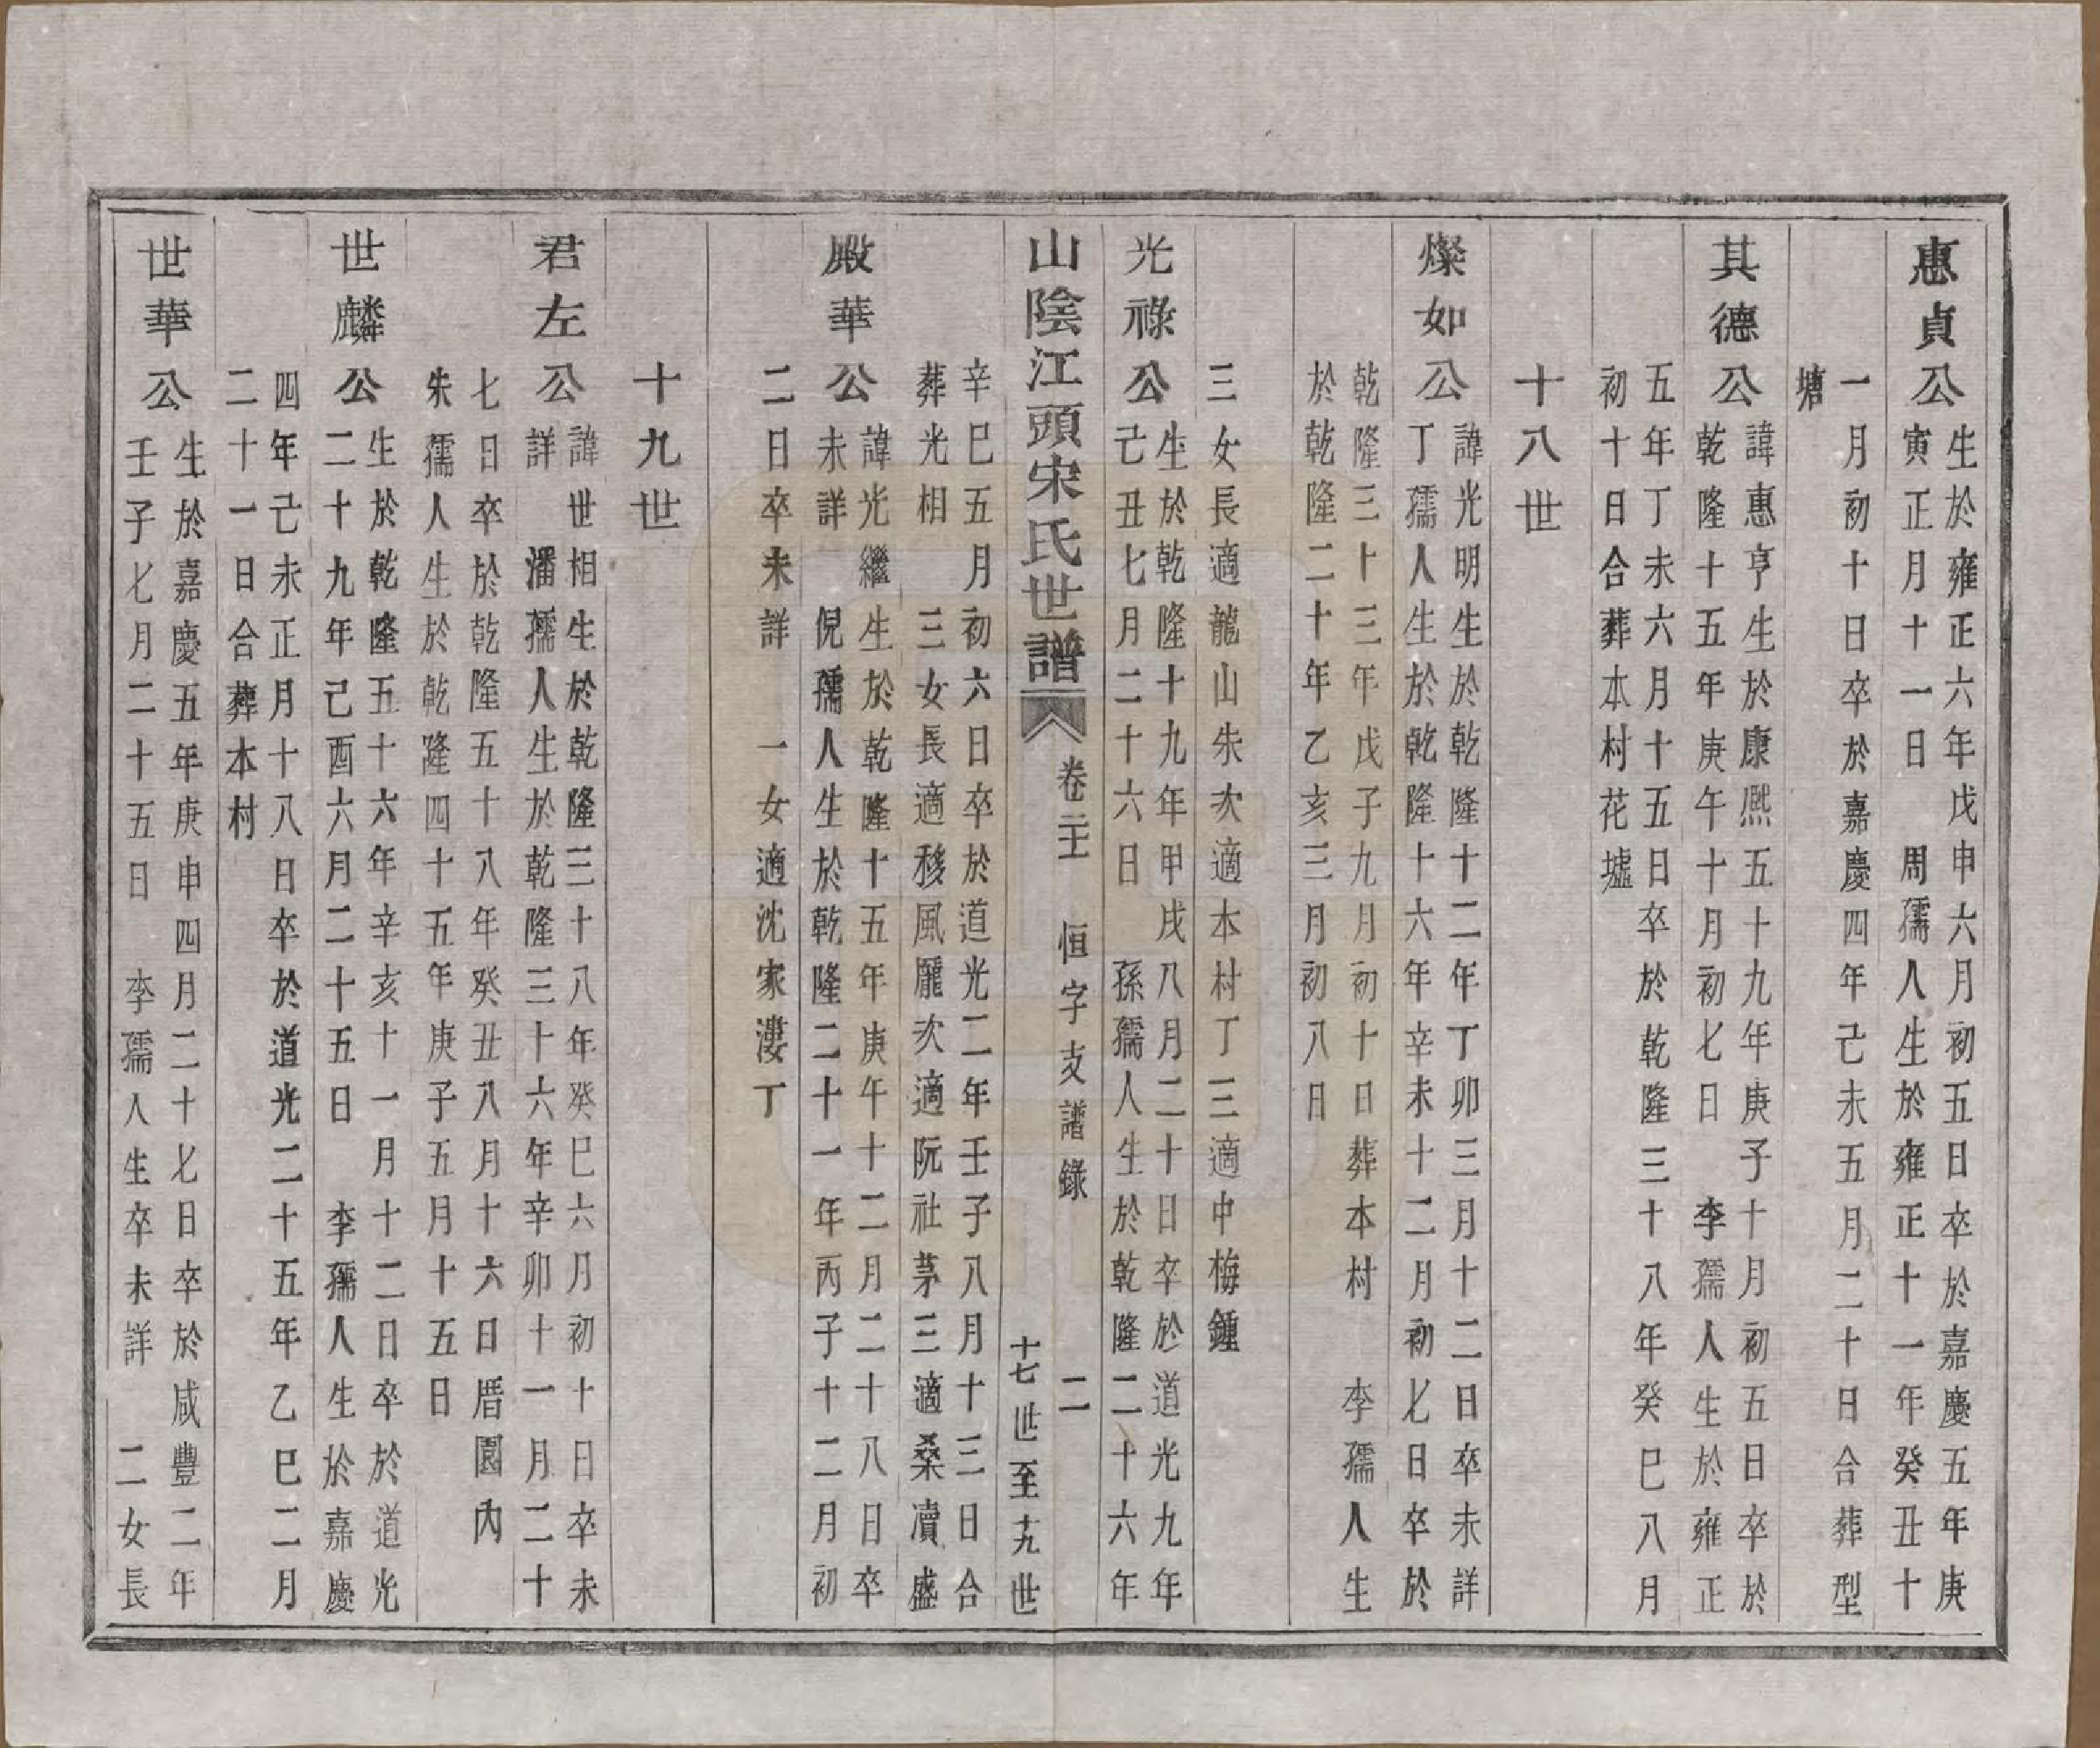 惠貞公
生於雍正六年戊申六月初五日卒於嘉慶五年庚
寅正月十一日　周孺人生於雍正十一年癸丑十
一月初十日卒於嘉慶四年己未五月二十日合葬型
塘
其德公
諱惠亨生於康熙五十九年庚子十月初五日卒於
乾隆十五年庚午十月初七日　李孺人生於雍正
五年丁未六月十五日卒於乾隆三十八年癸巳八月
初十日合葬本村花墟
十八世
燦如公
諱光明生於乾隆十二年丁卯三月十二日卒未詳
丁孺人生於乾隆十六年辛未十二月初七日卒於
乾隆三十三年戊子九月初十日葬本村　李孺人生
於乾隆二十年乙亥三月初八日
三女長適龍山朱次適本村丁三適中梅鍾
光祿公
生於乾隆十九年甲戌八月二十日卒於道光九年
己丑七月二十六日　孫孺人生於乾隆二十六年
山陰江頭宋氏世譜
卷二十　恒字支譜錄　二
十七世至十九世
辛巳五月初六日卒於道光二年壬子八月十三日合
葬光相　三女長適移風龐次適阮社茅三適桑瀆盛
殿華公
諱光繼生於乾隆十五年庚午十二月二十八日卒
未詳　倪孺人生於乾隆二十一年丙子十二月初
二日卒未詳　一女適沈家漊丁
十九世
君左公
諱世相生於乾隆三十八年癸巳六月初十日卒未
詳　潘孺人生於乾隆三十六年辛卯十一月二十
七日卒於乾隆五十八年癸丑八月十六日厝園內
朱孺人生於乾隆四十五年庚子五月十五日
世麟公
生於乾隆五十六年辛亥十一月十二日卒於道光
二十九年己酉六月二十五日　李孺人生於嘉慶
四年己未正月十八日卒於道光二十五年乙巳二月
二十一日合葬本村
世華公
生於嘉慶五年庚申四月二十七日卒於咸豐二年
壬子七月二十五日　李孺人生卒未詳　二女長